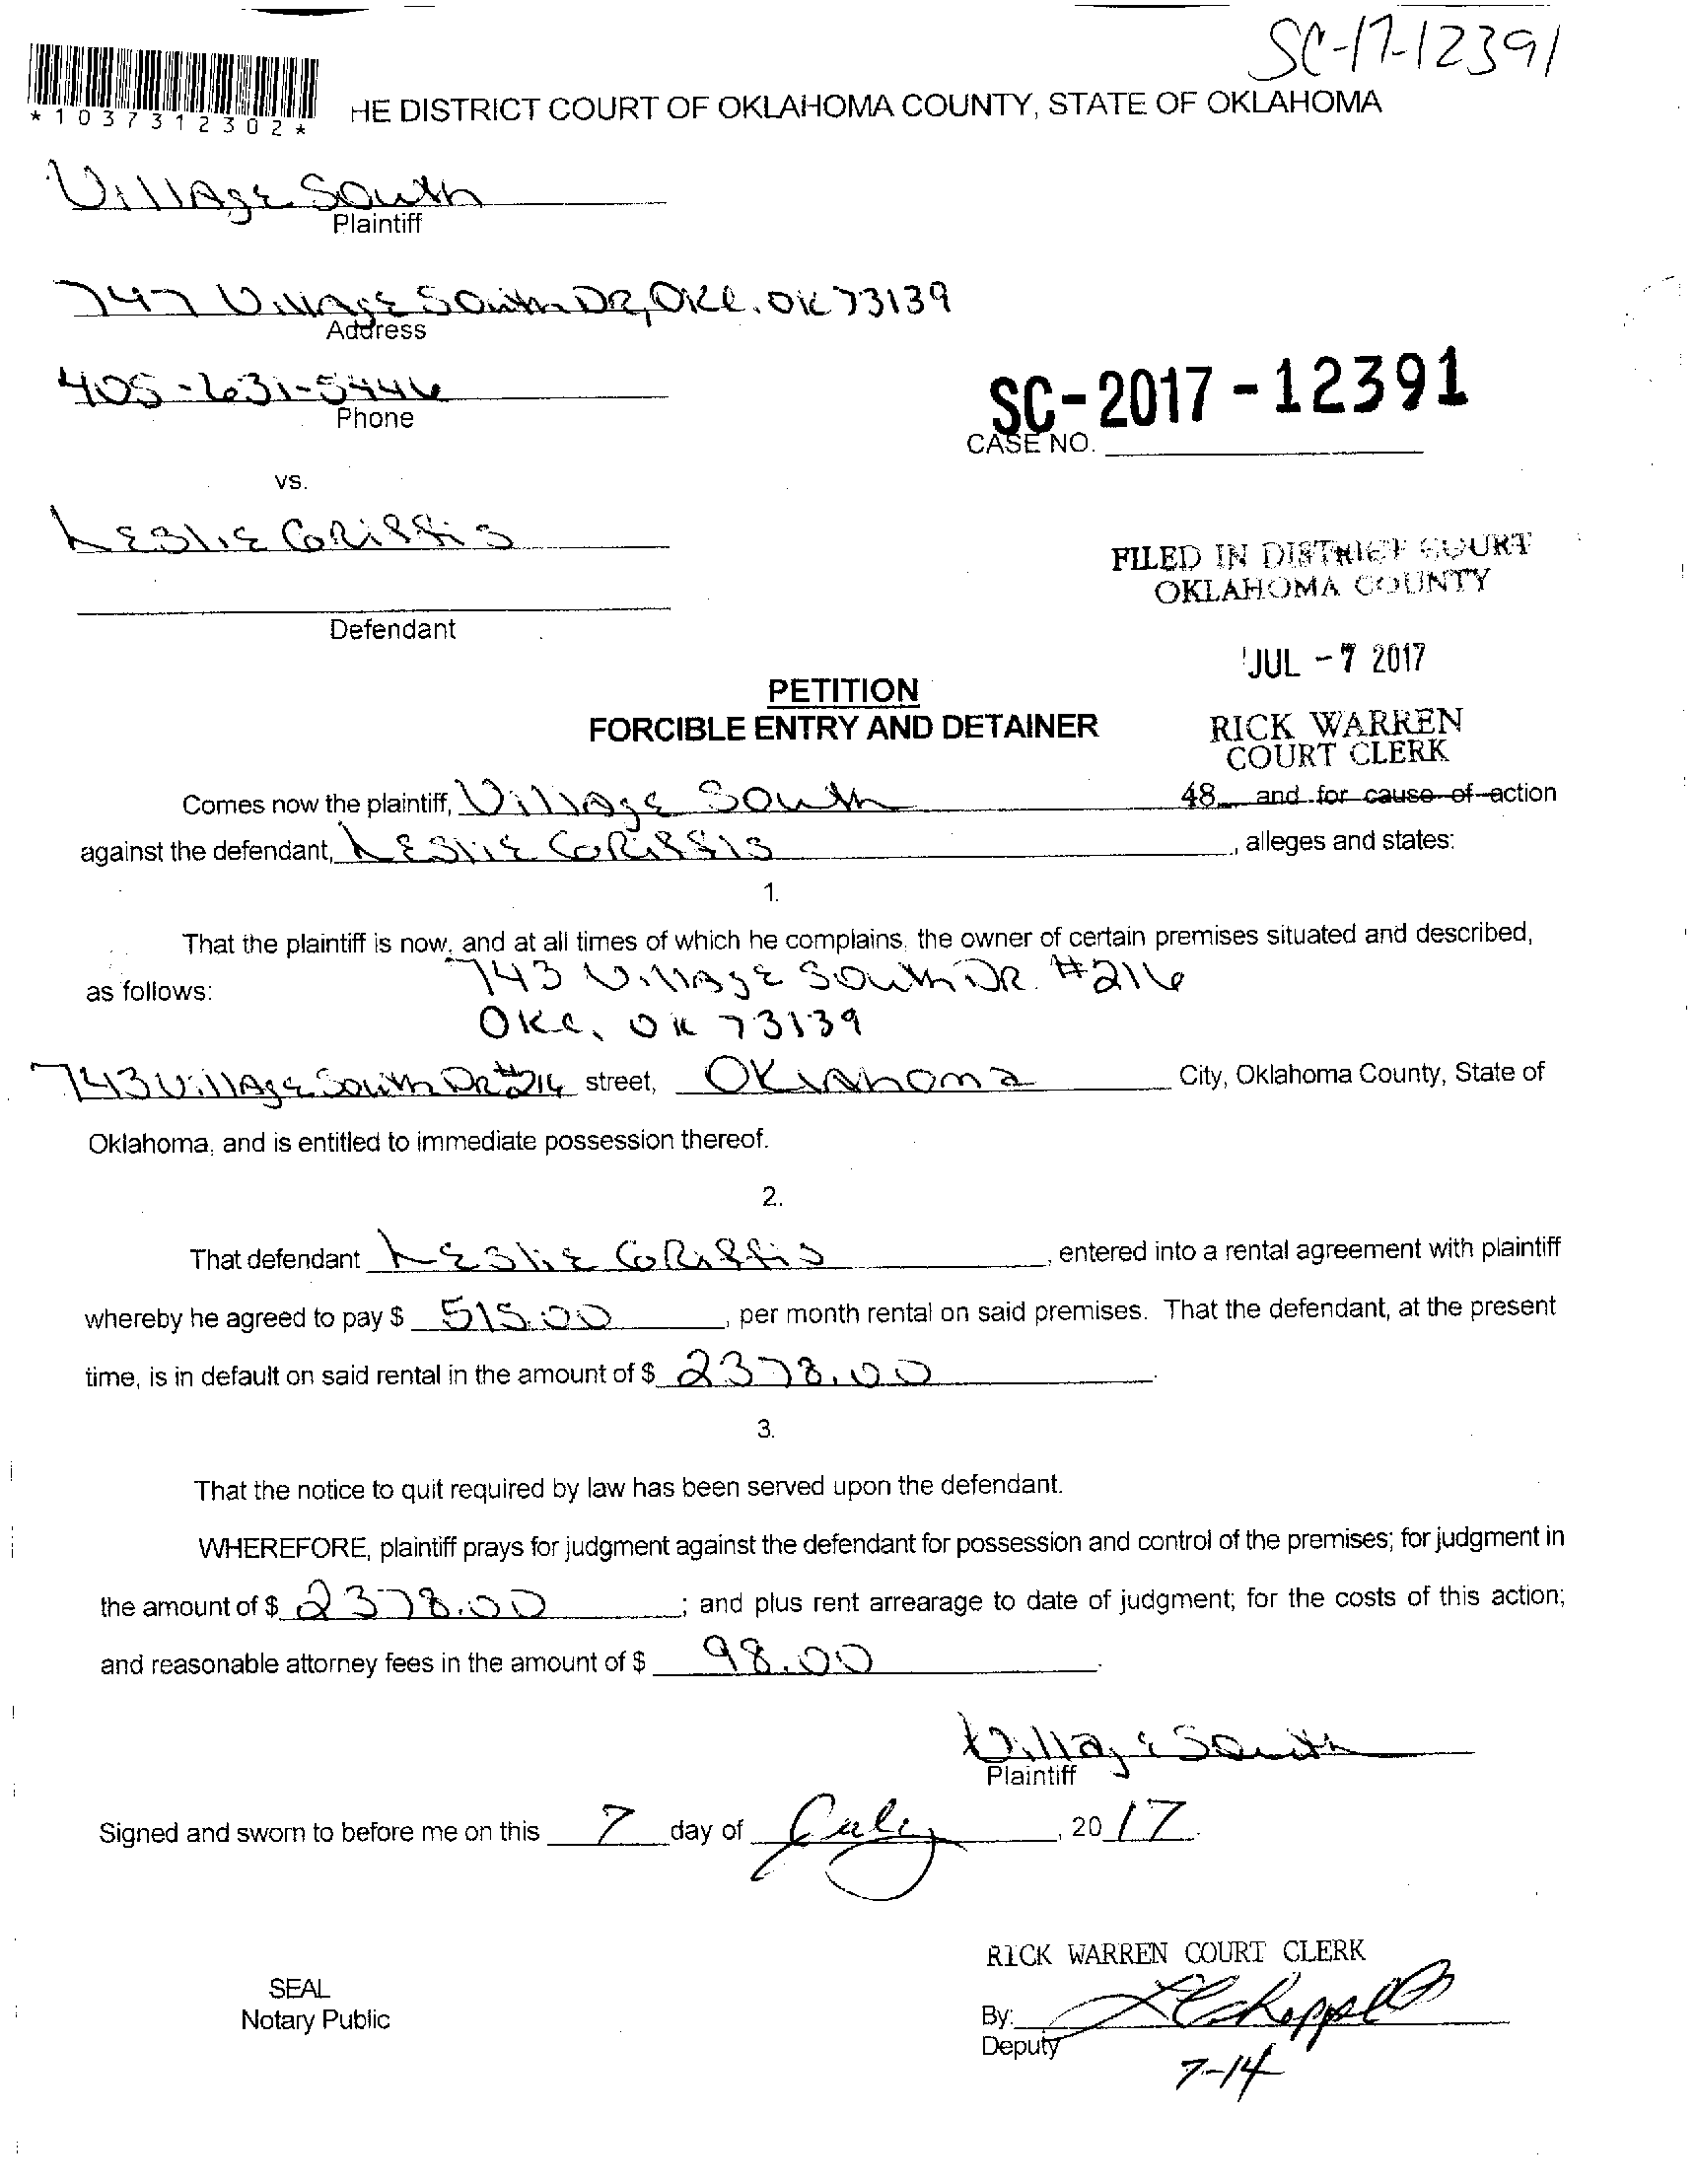 SC-17-12391
*1037312302*
HE DISTRICT COURT OF OKLAHOMA COUNTY, STATE OF OKLAHOMA
Village South
Plaintiff
747 Village South DR, OKC. OK 73139
Address
405-631-5446
Phone
SC-2017-12391
CASE NO.
vs.
Leslie Griffis
FILED IN DISTRICT COURT
OKLAHOMA COUNTY
Defendant
JUL -7 2017
PETITION
FORCIBLE ENTRY AND DETAINER
RICK WARREN
COURT CLERK
Comes now the plaintiff, Village South 48 and for cause of action
against the defendant, Leslie Griffis, alleges and states:
1.
That the plaintiff is now, and at all times of which he complains, the owner of certain premises situated and described,
as follows: 743 Village South DR. #216
OKC, OK 73139
743 Village South DR #216 street, Oklahoma City, Oklahoma County, State of
Oklahoma, and is entitled to immediate possession thereof.
2.
That defendant Leslie Griffis, entered into a rental agreement with plaintiff
whereby he agreed to pay $ 515.00, per month rental on said premises. That the defendant, at the present
time, is in default on said rental in the amount of $ 2378.00.
3.
That the notice to quit required by law has been served upon the defendant.
WHEREFORE, plaintiff prays for judgment against the defendant for possession and control of the premises; for judgment in
the amount of $ 2378.00; and plus rent arrearage to date of judgment; for the costs of this action;
and reasonable attorney fees in the amount of $ 98.00.
Village South
Plaintiff
Signed and sworn to before me on this 7 day of July, 2017.
RICK WARREN COURT CLERK
SEAL
Notary Public
By:
Deputy
7-14